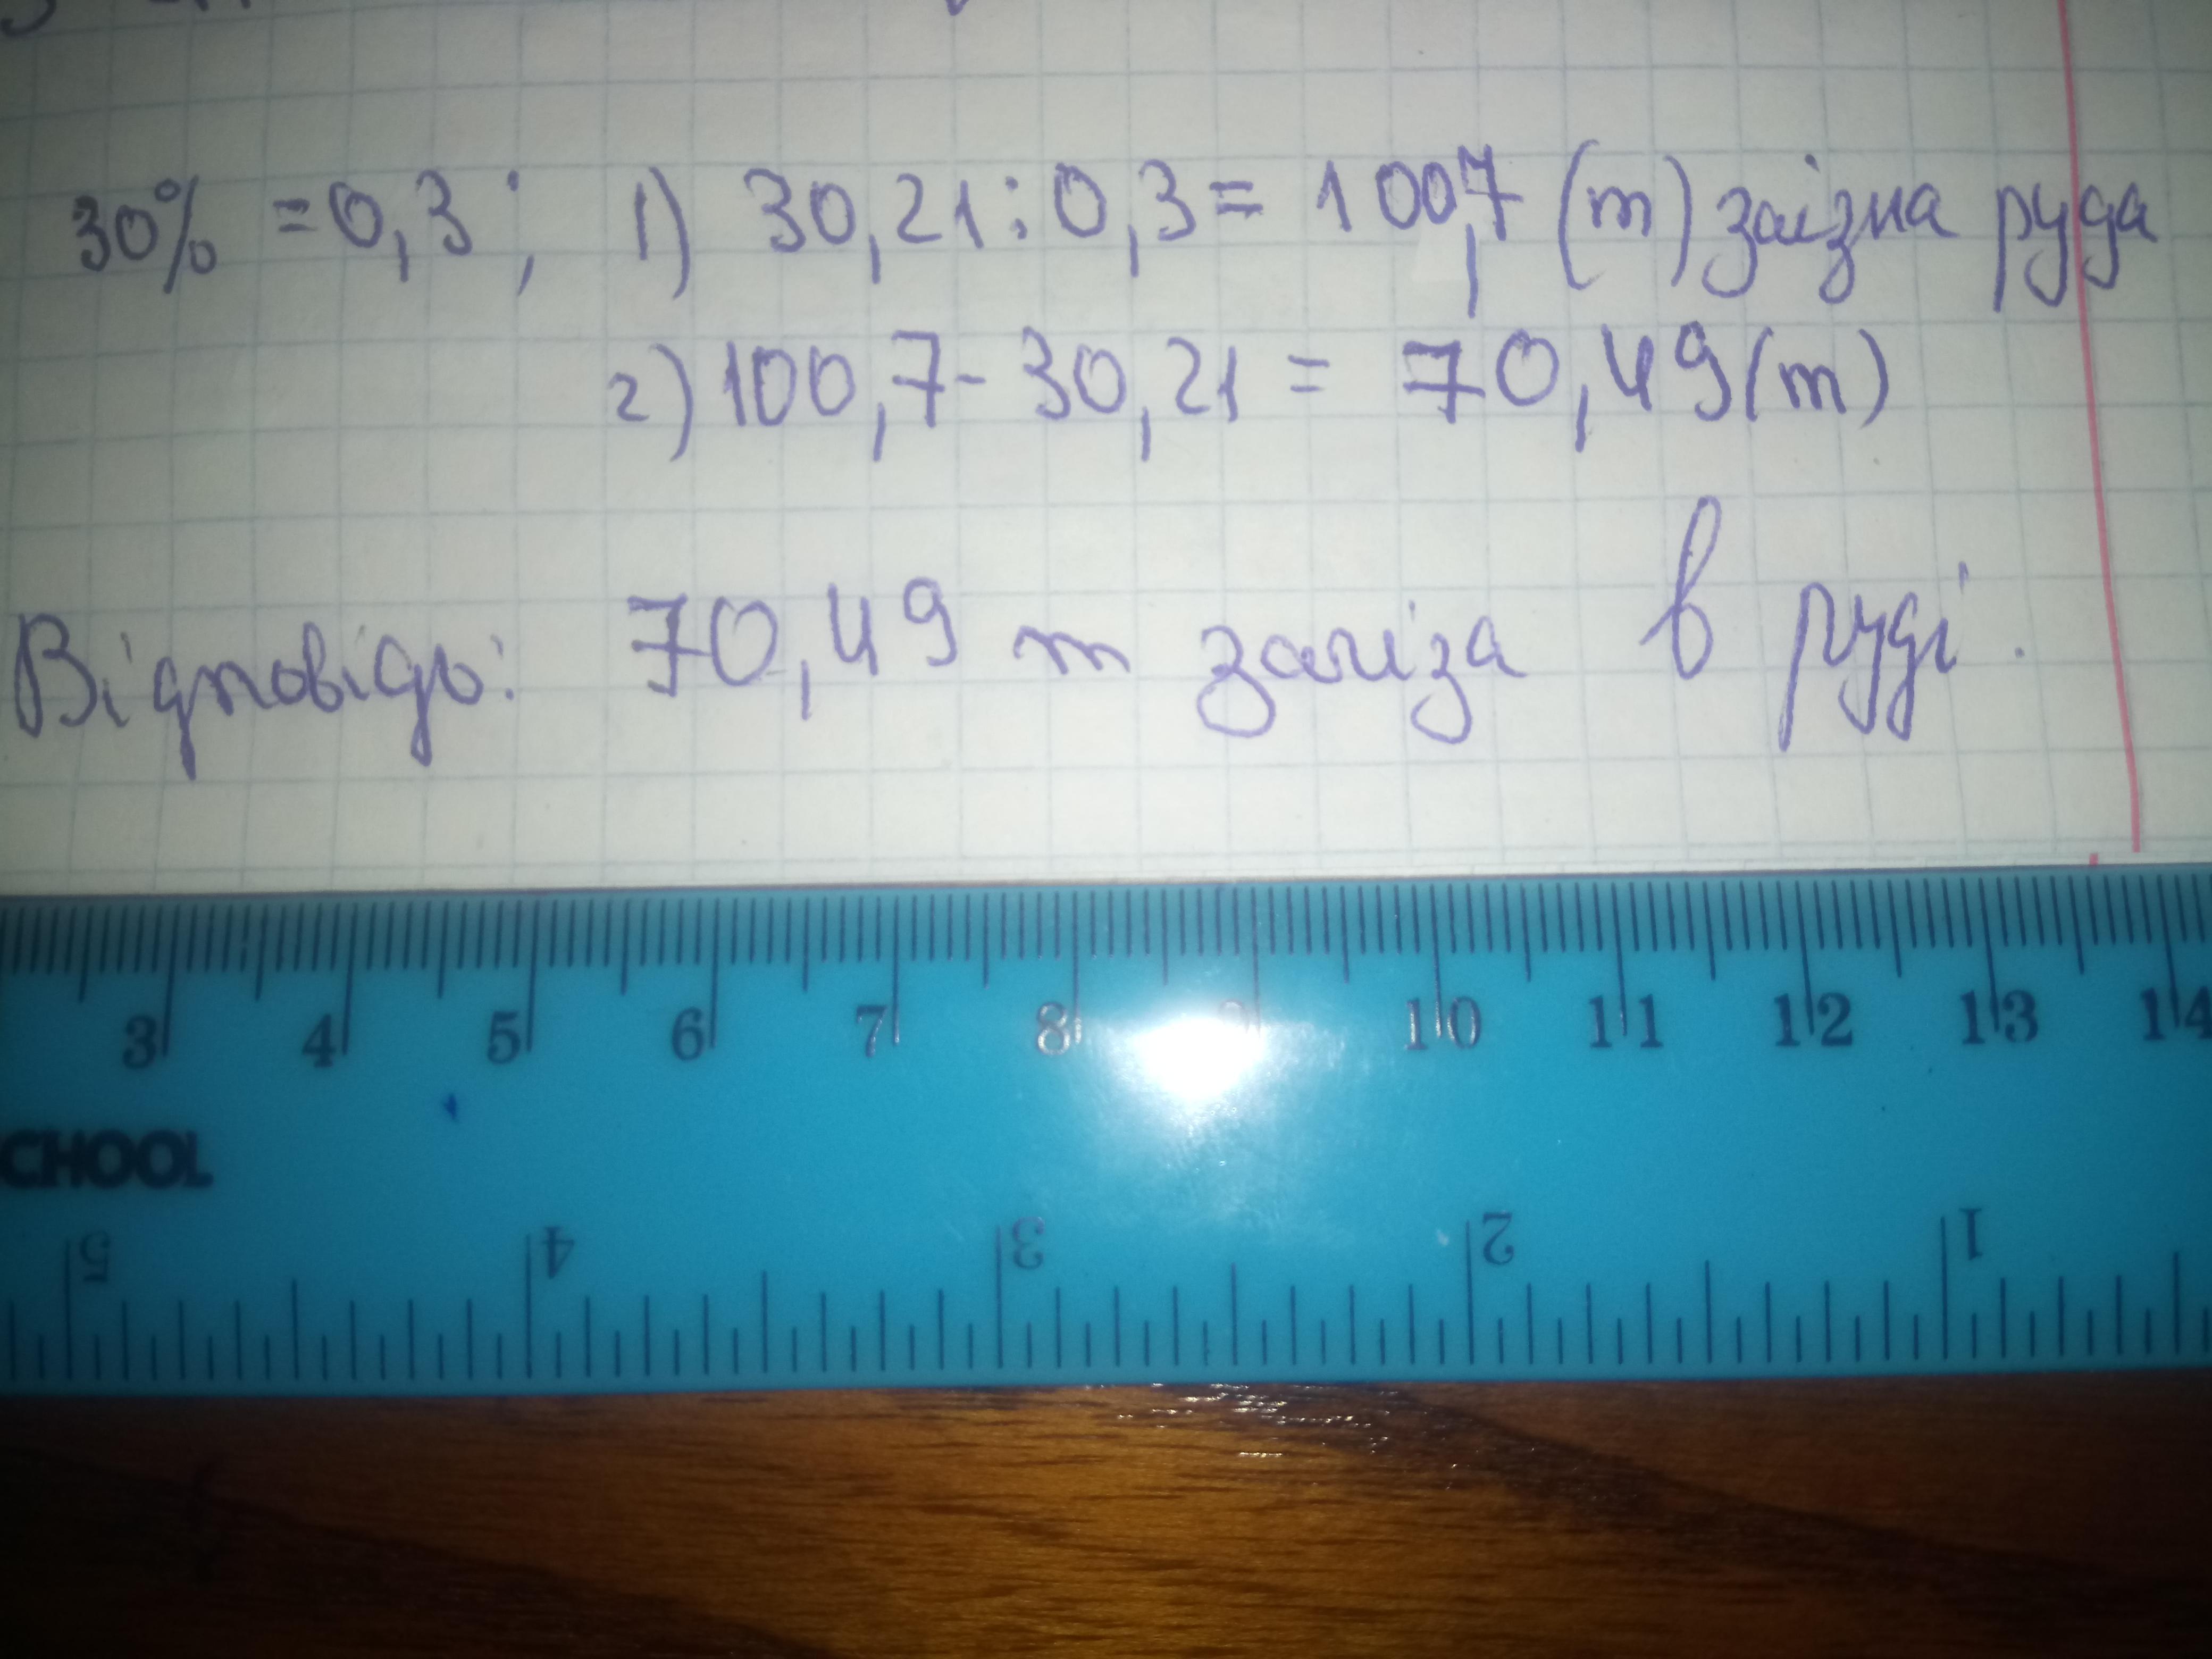 30% = 0,3 ; 1) 30,21 : 0,3 = 100,7 (т) заізна руда
2) 100,7 - 30,21 = 70,49 (т)
Відповідь: 70,49 т заліза в руді .
3 4 5 6 7 8 9 10 11 12 13 14
CHOOL
5 4 3 2 1